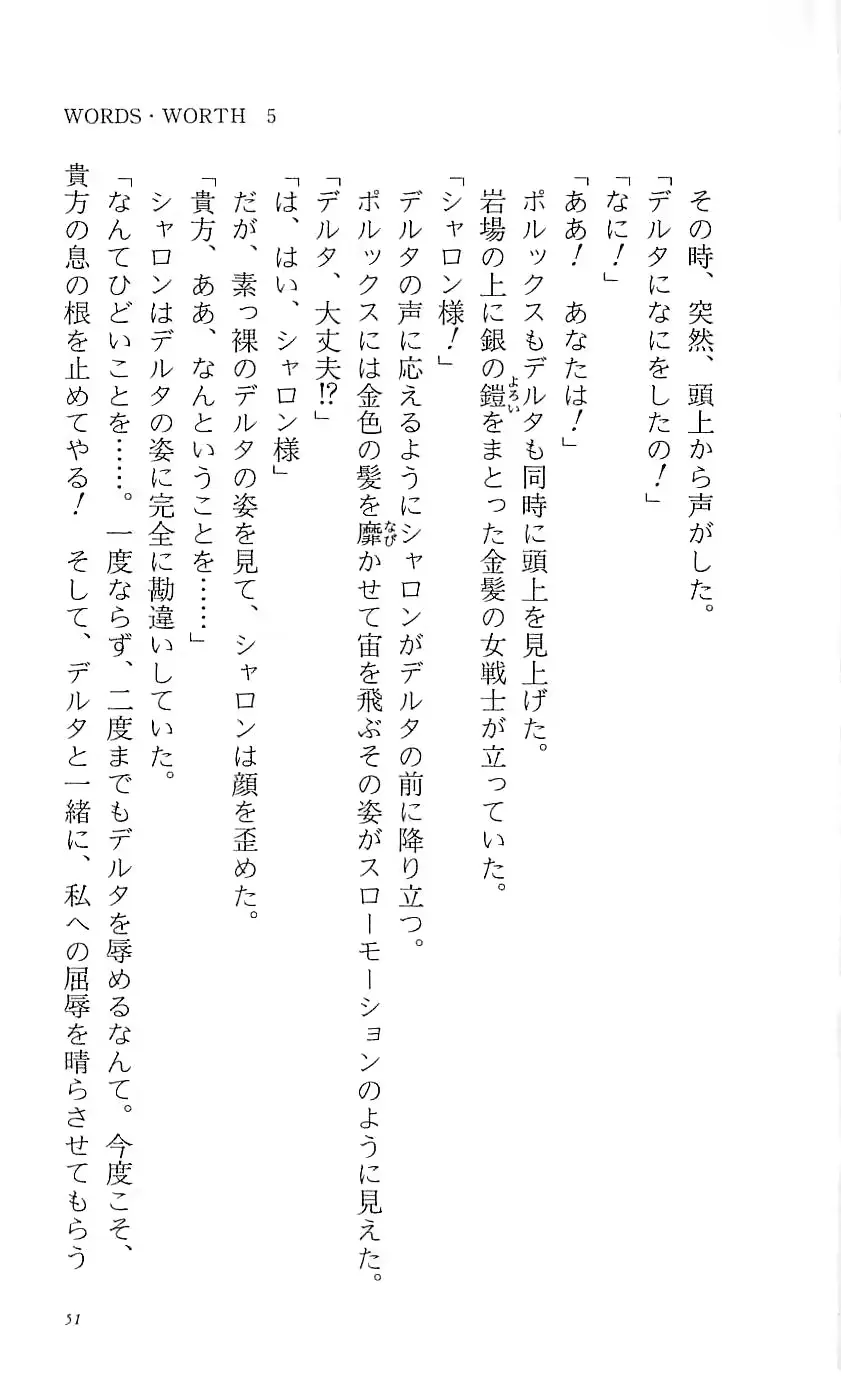 WORDS・WORTH 5
　その時、突然、頭上から声がした。
「デルタになにをしたの！」
「なに！」
「ああ！　あなたは！」
　ポルックスもデルタも同時に頭上を見上げた。
　岩場の上に銀の鎧をまとった金髪の女戦士が立っていた。
「シャロン様！」
　デルタの声に応えるようにシャロンがデルタの前に降り立つ。
　ポルックスには金色の髪を靡かせて宙を飛ぶその姿がスローモーションのように見えた。
「デルタ、大丈夫!?」
「は、はい、シャロン様」
　だが、素っ裸のデルタの姿を見て、シャロンは顔を歪めた。
「貴方、ああ、なんということを……」
　シャロンはデルタの姿に完全に勘違いしていた。
「なんてひどいことを……。一度ならず、二度までもデルタを辱めるなんて。今度こそ、
貴方の息の根を止めてやる！　そして、デルタと一緒に、私への屈辱を晴らさせてもらう
51